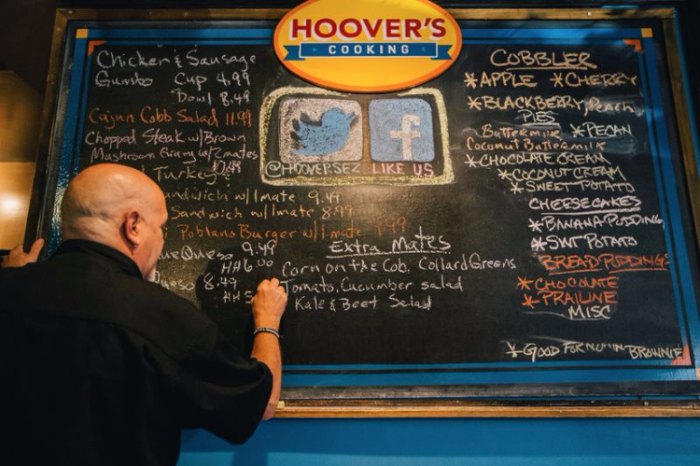 HOOVER'S
COOKING
Chicken & Sausage
Gumbo Cup 4.99
Bowl 8.49
Cajun Cobb Salad 11.99
Chopped Steak w/Brown
Mushroom Gravy w/2 mates
Turkey
Sandwich w/1 mate 9.49
Sandwich w/1 mate 8.99
Poblano Burger w/1 mate
Queso 9.49
HH 6.00
Queso 8.49
HH 5
@HOOVERSEZ LIKE US
f
Extra Mates
Corn on the Cob, Collard Greens
Tomato, Cucumber salad
Kale & Beet Salad
COBBLER
*APPLE *CHERRY
*BLACKBERRY, Peach
PIES
Buttermilk *PECAN
Coconut Buttermilk
*CHOCOLATE CREAM
*COCONUT CREAM
*SWEET POTATO
CHEESECAKES
*BANANA PUDDING
*SWT POTATO
BREAD PUDDING
*CHOCOLATE
*PRALINE
MISC
*GOOD FOR NUTHIN BROWNIE